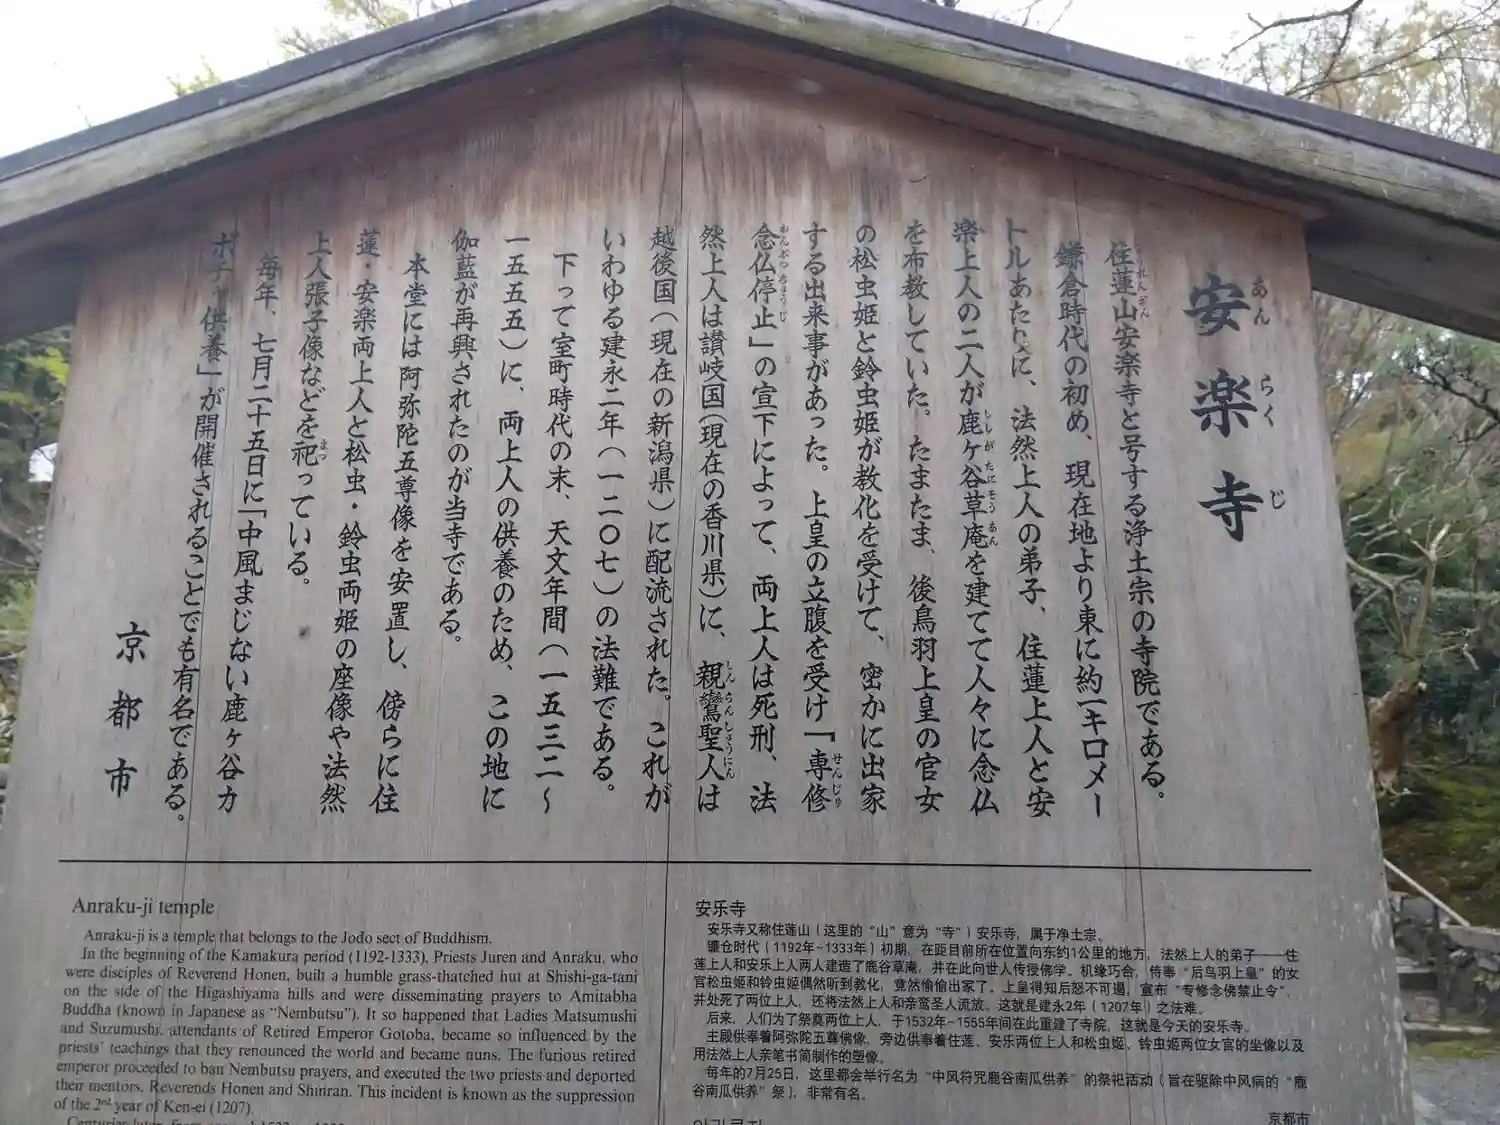 安楽寺
あんらくじ
住蓮山安楽寺と号する浄土宗の寺院である。
鎌倉時代の初め、現在地より東に約一キロメー
トルあたりに、法然上人の弟子、住蓮上人と安
楽上人の二人が鹿ヶ谷草庵を建てて人々に念仏
を布教していた。たまたま、後鳥羽上皇の官女
の松虫姫と鈴虫姫が教化を受けて、密かに出家
する出来事があった。上皇の立腹を受け『専修
念仏停止」の宣下によって、両上人は死刑、法
然上人は讃岐国(現在の香川県)に、親鸞聖人は
越後国(現在の新潟県)に配流された。これが
いわゆる建永二年(一二〇七)の法難である。
下って室町時代の末、天文年間(一五三二〜
一五五五)に、両上人の供養のため、この地に
伽藍が再興されたのが当寺である。
本堂には阿弥陀五尊像を安置し、傍らに住
蓮・安楽両上人と松虫・鈴虫両姫の座像や法然
上人張子像などを祀っている。
毎年、七月二十五日に「中風まじない鹿ヶ谷カ
ボチャ供養」が開催されることでも有名である。
京都市
Anraku-ji temple
Anraku-ji is a temple that belongs to the Jodo sect of Buddhism.
In the beginning of the Kamakura period (1192-1333), Priests Juren and Anraku, who
were disciples of Reverend Honen, built a humble grass-thatched hut at Shishi-ga-tani
on the side of the Higashiyama hills and were disseminating prayers to Amitabha
Buddha (known in Japanese as “Nembutsu”). It so happened that Ladies Matsumushi
and Suzumushi, attendants of Retired Emperor Gotoba, became so influenced by the
priests' teachings that they renounced the world and became nuns. The furious retired
emperor proceeded to ban Nembutsu prayers, and executed the two priests and deported
their mentors, Reverends Honen and Shinran. This incident is known as the suppression
of the 2nd year of Ken-ei (1207).
安乐寺
安乐寺又称住莲山（这里的“山”意为“寺”）安乐寺，属于净土宗。
镰仓时代（1192年~1333年）初期，在距目前所在位置向东约1公里的地方，法然上人的弟子——住
莲上人和安乐上人两人建造了鹿谷草庵，并在此向世人传授佛学。机缘巧合，侍奉“后鸟羽上皇”的女
官松虫姬和铃虫姬偶然听到教化，竟然偷偷出家了。上皇得知后怒不可遏，宣布“专修念佛禁止令”，
并处死了两位上人，还将法然上人和亲鸾圣人流放。这就是建永2年（1207年）之法难。
后来，人们为了祭奠两位上人，于1532年~1555年间在此重建了寺院，这就是今天的安乐寺。
主殿供奉着阿弥陀五尊佛像，旁边供奉着住莲、安乐两位上人和松虫姬、铃虫姬两位女官的坐像以及
用法然上人亲笔书简制作的塑像。
每年的7月25日，这里都会举行名为“中风符咒鹿谷南瓜供养”的祭祀活动（旨在驱除中风病的“鹿
谷南瓜供养”祭），非常有名。
京都市